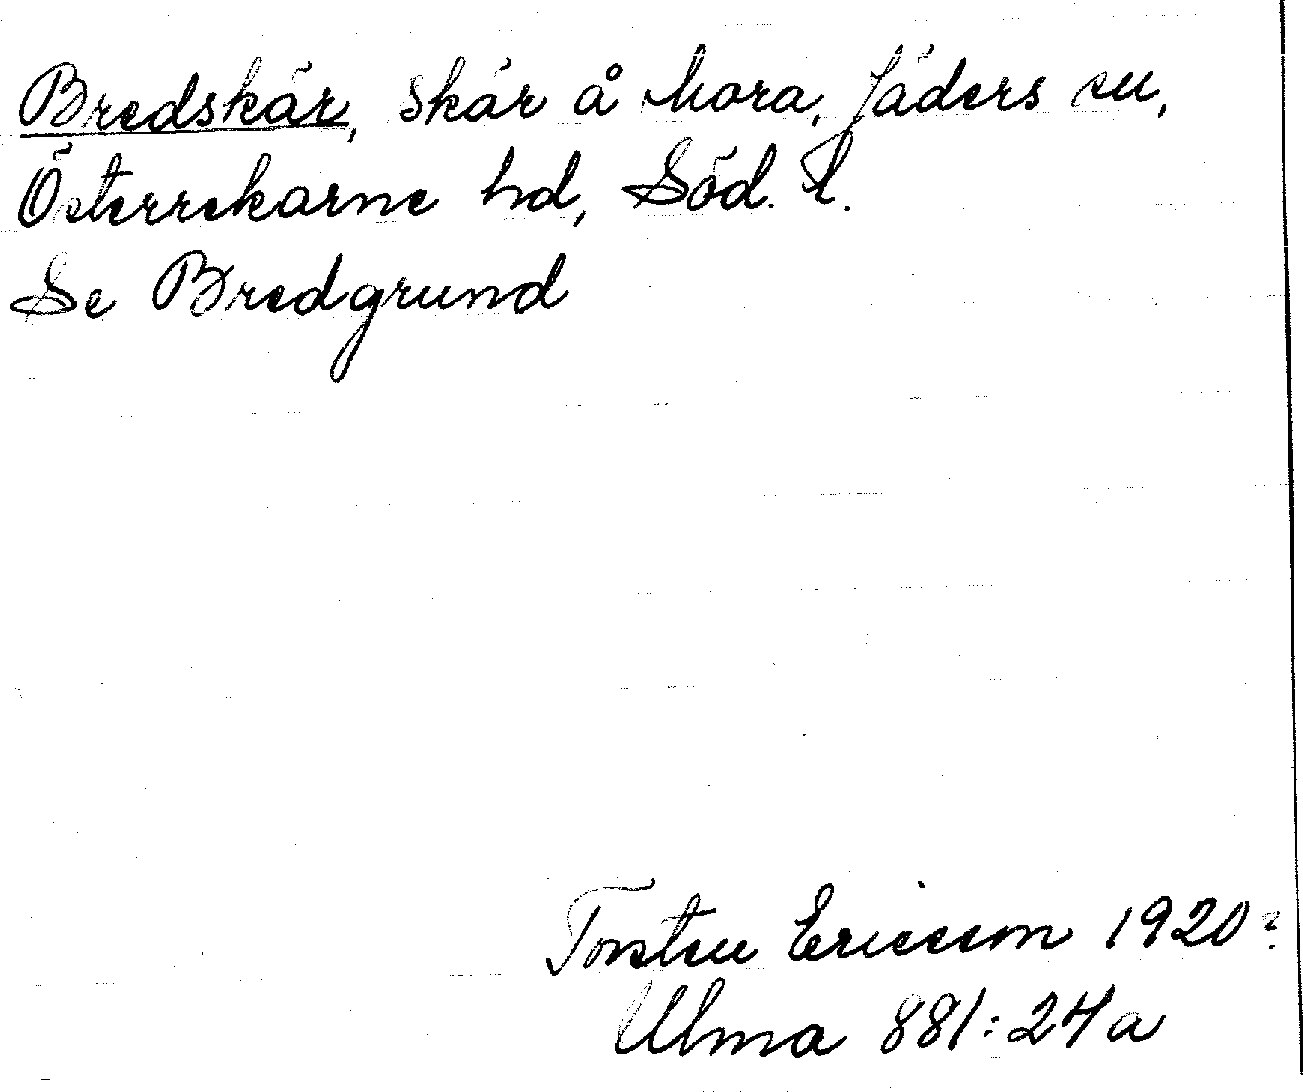 Bredskär, skär å Mora, Jäders sn,
Österrekarne hd, Söd. l.
Se Bredgrund
Torsten Ericsson 1920?
Ulma 881:24a